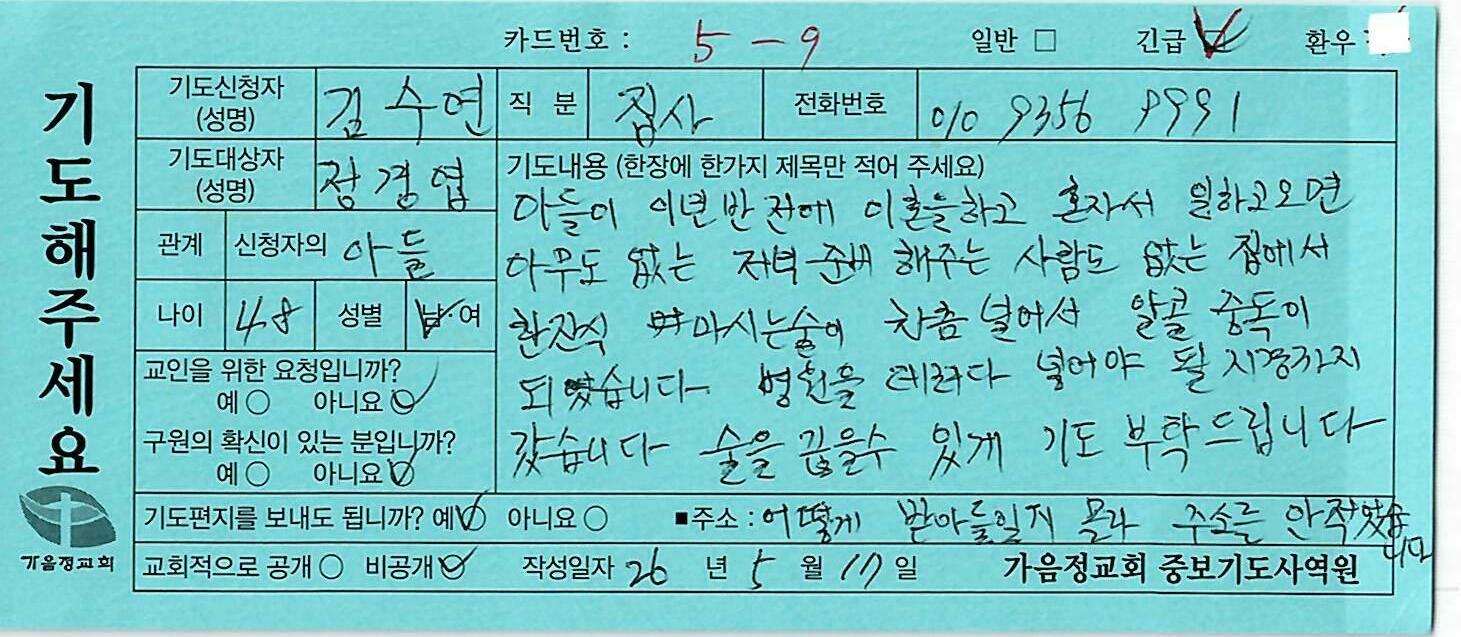 카드번호 : 5-9 일반 □ 긴급 ☑ 환우
기도해주세요
가음정교회
기도신청자 (성명) 김수연 직 분 집사 전화번호 010 9356 9991
기도대상자 (성명) 정경엽
관계 신청자의 아들
나이 48 성별 남 여
교인을 위한 요청입니까?
예 ○ 아니요 ○
구원의 확신이 있는 분입니까?
예 ○ 아니요 ○
기도내용 (한장에 한가지 제목만 적어 주세요)
아들이 이년반 전에 이혼을하고 혼자서 일하고오면
아무도 없는 저녁 준비 해주는 사람도 없는 집에서
한잔식 마시는술이 차츰 널어서 알콜 중독이
되었습니다. 병원을 데려다 넣어야 될 지경까지
갔습니다 술을 끊을수 있게 기도 부탁드립니다
기도편지를 보내도 됩니까? 예 ○ 아니요 ○ ■주소 : 어떻게 받아들일지 몰라 주소를 안적었습니다
교회적으로 공개 ○ 비공개 ○ 작성일자 26 년 5 월 17 일 가음정교회 중보기도사역원